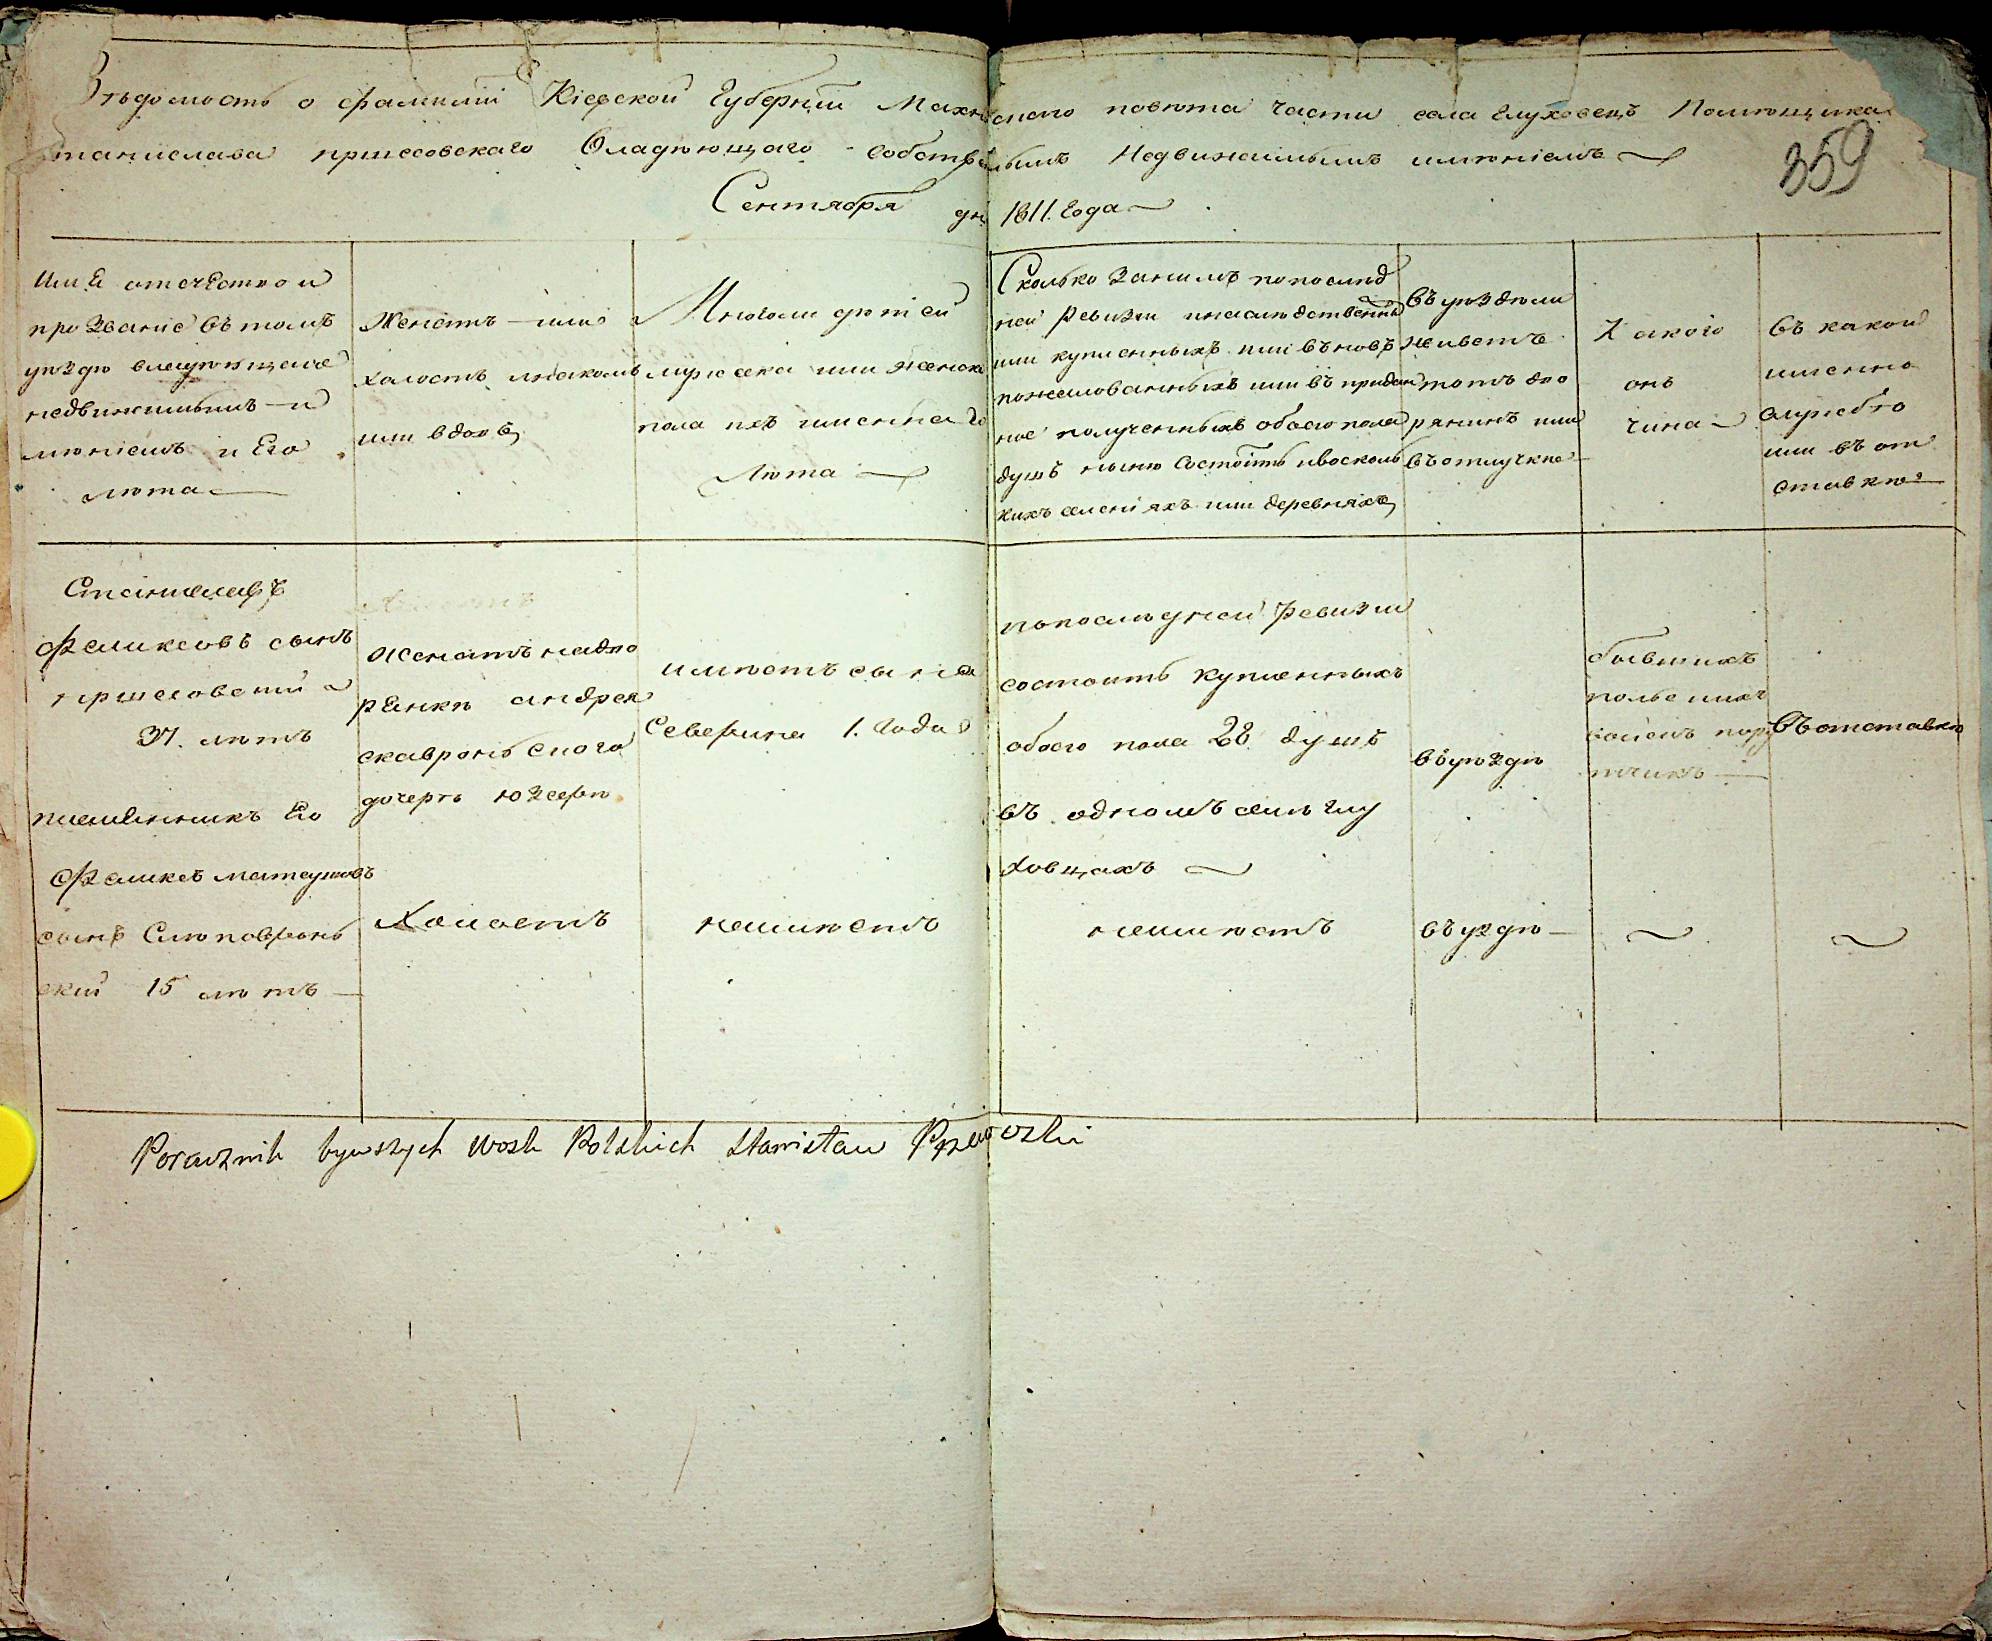 Вѣдомость о фамиліи Кіевской Губерніи Махновского повѣта части села Глуховецъ Помѣщика
Станислава пршесовскаго Владѣющаго собственнымъ Недвижимымъ имѣніемъ
359
Сентября дня 1811. Года
Имѣ отечество и
прозваніе въ томъ
уѣздѣ
недвижимымъ и
мѣніемъ и Его
лѣта
Женатъ или
холостъ на комъ
или вдовъ
Много ли дѣтей
мужеска или женска
пола ихъ имена
лѣта
Сколько за нимъ попослѣд
ней Ревизіи наслѣдственны
или купленныхъ или въновь
пожалованныхъ или въ придан
ное полученныхъ обоего пола
душъ нынѣ состоитъ ивосколь
кихъ селеніяхъ или деревняхъ
въ уѣздѣ ли
живетъ
тотъ дво
рянинъ или
въ отлучкѣ
Какого
онъ
чина
въ какой
именно
службѣ
или въ от
ставкѣ
Станиславъ
Феликсовъ сынъ
пршесовский
37. лѣтъ
женатъ надво
рянкѣ андрея
скавронского
дочерь юзефѣ
имѣетъ сына
Северина 1. Года
попослѣдней Ревизіи
состоитъ купленныхъ
обоего пола 28 душъ
въ одномъ селѣ глу
ховцахъ
въуѣздѣ
бывшихъ
польскихъ
войскъ пору
тчикъ
въ отставкѣ
племянникъ Его
Феликсъ матеушовъ
сынъ
ский 15 лѣтъ
Холостъ
неимѣетъ
неимѣетъ
въуздѣ
Porucznik bywszych Wosk Polskich Stanisław